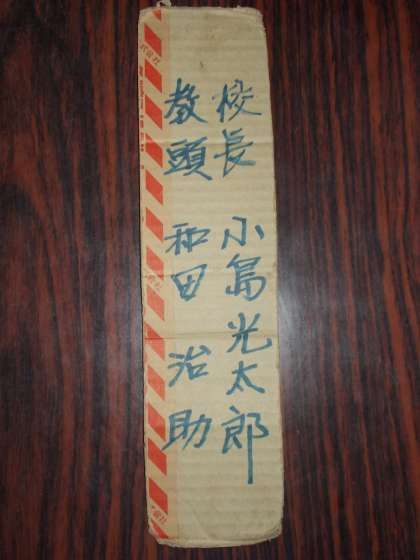 校長　小島光太郎
教頭　和田　治助